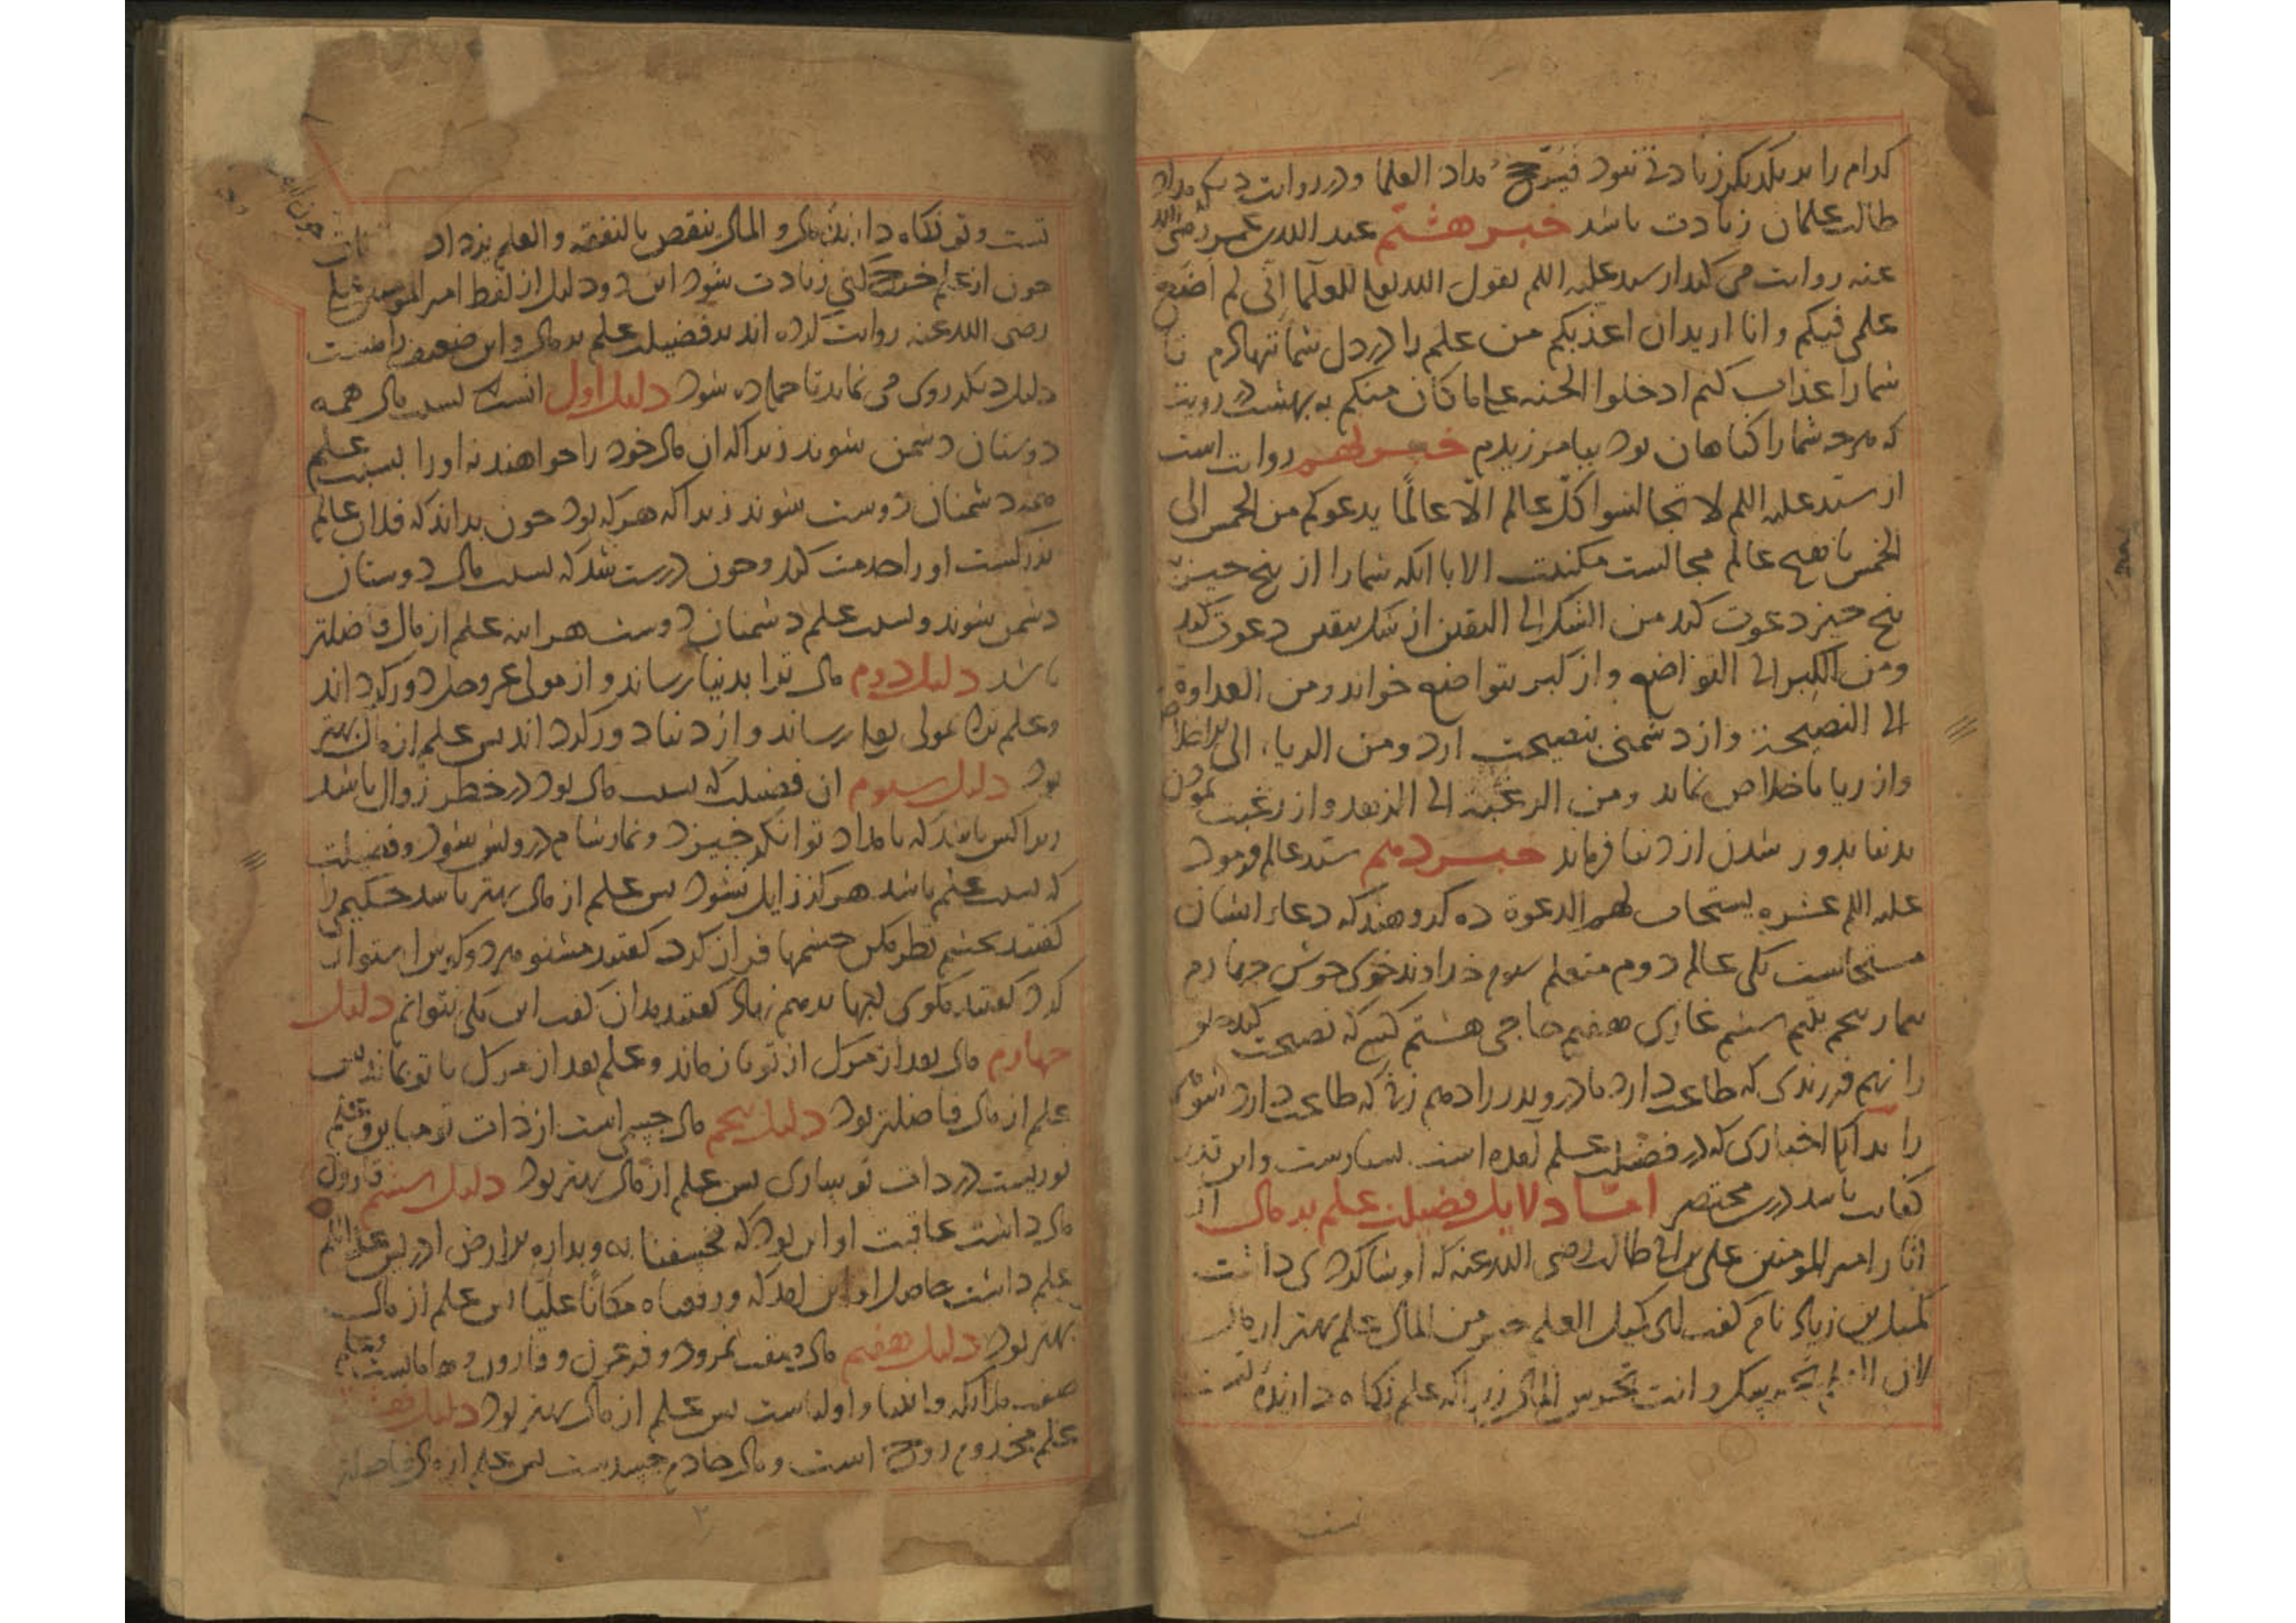 کدام را بر یکدیکر زیادتی شود فیرجح مداد العلما و در روایت دیکر مداد
طالب علمان زیادت باشد خبر هشتم عبد الله بن عمر رضی الله
عنه روایت می کند از سید علیه اللم یقول الله تعا للعلما انی لم اضع
علمی فیکم و انا ارید ان اعذبکم من علم را در دل شما ننهادم تا
شما را عذاب کنم ادخلوا الجنه علی ما کان منکم به بهشت در رویت
که هرچه شما را کناهان بود بیامرزیدم خبر نهم روایت است
از سید علیه اللم لا تجالسوا کل عالم الا عالما یدعوکم من الخمس الی
الخمس با هیچ عالم مجالست مکنیت الا با انکه شما را از پنج چیز
پنج چیز دعوت کند من الشک الی الیقین از شک بیقین دعوت کند
ومن الکبر الی التواضع و از کبر بتواضع خواند ومن العداوة
الی النصیحة و از دشمنی بنصیحت ارد ومن الریاء الی الاخلاص
واز ریا باخلاص نماید ومن الرغبة الی الزهد و از رغبت نمودن
بدنیا بدور شدن از دنیا فرماید خبر دهم سید عالم فرمود
علیه اللم عشره یستجاب لهم الدعوة ده کروهند که دعاء ایشان
مستجابست یکی عالم دوم متعلم سوم خداوند خوی خوش چهارم
بیمار پنجم یتیم ششم غازی هفتم حاجی هشتم کسی که نصیحت کند خلق
را نهم فرزندی که طاعت دارد مادر و پدر را دهم زنی که طاعت دارد شوی
را بدانک اخباری که در فضیلت علم آمده است بسیارست و این قدر
کفایت باشد در این مختصر اما دلایل فضیلت علم بر مال از
انا را امیر المومنین علی بن ابی طالب رضی الله عنه که او شاکردی داشت
کمیل بن زیاد نام کفت ای کمیل العلم خیر من المال علم بهتر از مال
لان العلم یحرسک و انت تحرس المال زیرا که علم نکاه دارنده
تست و تو نکاه دارنده مال و المال ینقص بالنفقه و العلم یزداد
چون از علم خرج کنی زیادت شود این دو دلیل از لفظ امیر المومنین علی
رضی الله عنه روایت کرده اند بر فضیلت علم بر مال و این ضعیف را هشت
دلیل دیکر روی می نماید تا جمله ده شود دلیل اول انست که بسبب مال همه
دوستان دشمن شوند زیرا که ان مال خود را خواهند نه او را بسبب علم
همه دشمنان دوست شوند زیرا که هر که بود چون بداند که فلان عالم
بزرکست او را خدمت کند و چون درست شد که بسبب مال دوستان
دشمن شوند و بسبب علم دشمنان دوست هراینه علم از مال فاضلتر
باشد دلیل دوم مال ترا بدنیا رساند و از مولی عز وجل دور کرداند
و علم ترا بمولی تعا رساند و از دنیا دور کرداند پس علم از مال بهتر
بود دلیل سوم ان فضیلت که بسبب مال بود در خطر زوال باشد
زیرا کس باشد که بامداد توانکر خیزد و نماز شام درویش شود و فضیلت
که بسبب علم باشد هرکز زایل نشود پس علم از مال بهتر باشد حکیمی را
کفتند بچشم نظر مکن چشمها فراز کرد کفتند مشنو هر دو کوش استوار
کرد کفتند مکوی لبها برهم نهاد کفتند مدان کفت این یکی نتوانم دلیل
چهارم مال بعد از مرک از تو باز ماند و علم بعد از مرک با تو بماند پس
علم از مال فاضلتر بود دلیل پنجم مال چیزی است از ذات تو مباین و علم
نوریست در ذات تو پس علم از مال بهتر بود دلیل ششم قارون
مال داشت عاقبت او این بود که فخسفنا به وبداره الارض ادریس علیه اللم
علم داشت حاصل او این بود که ورفعناه مکانا علیا پس علم از مال
بهتر بود دلیل هفتم مال صفت نمرود و فرعون و قارون و هامانست و علم
صفت ملایکه و انبیا و اولیاست پس علم از مال بهتر بود دلیل هشتم
علم مخدوم روح است و مال خادم جسدست پس علم از مال فاضلتر
۲